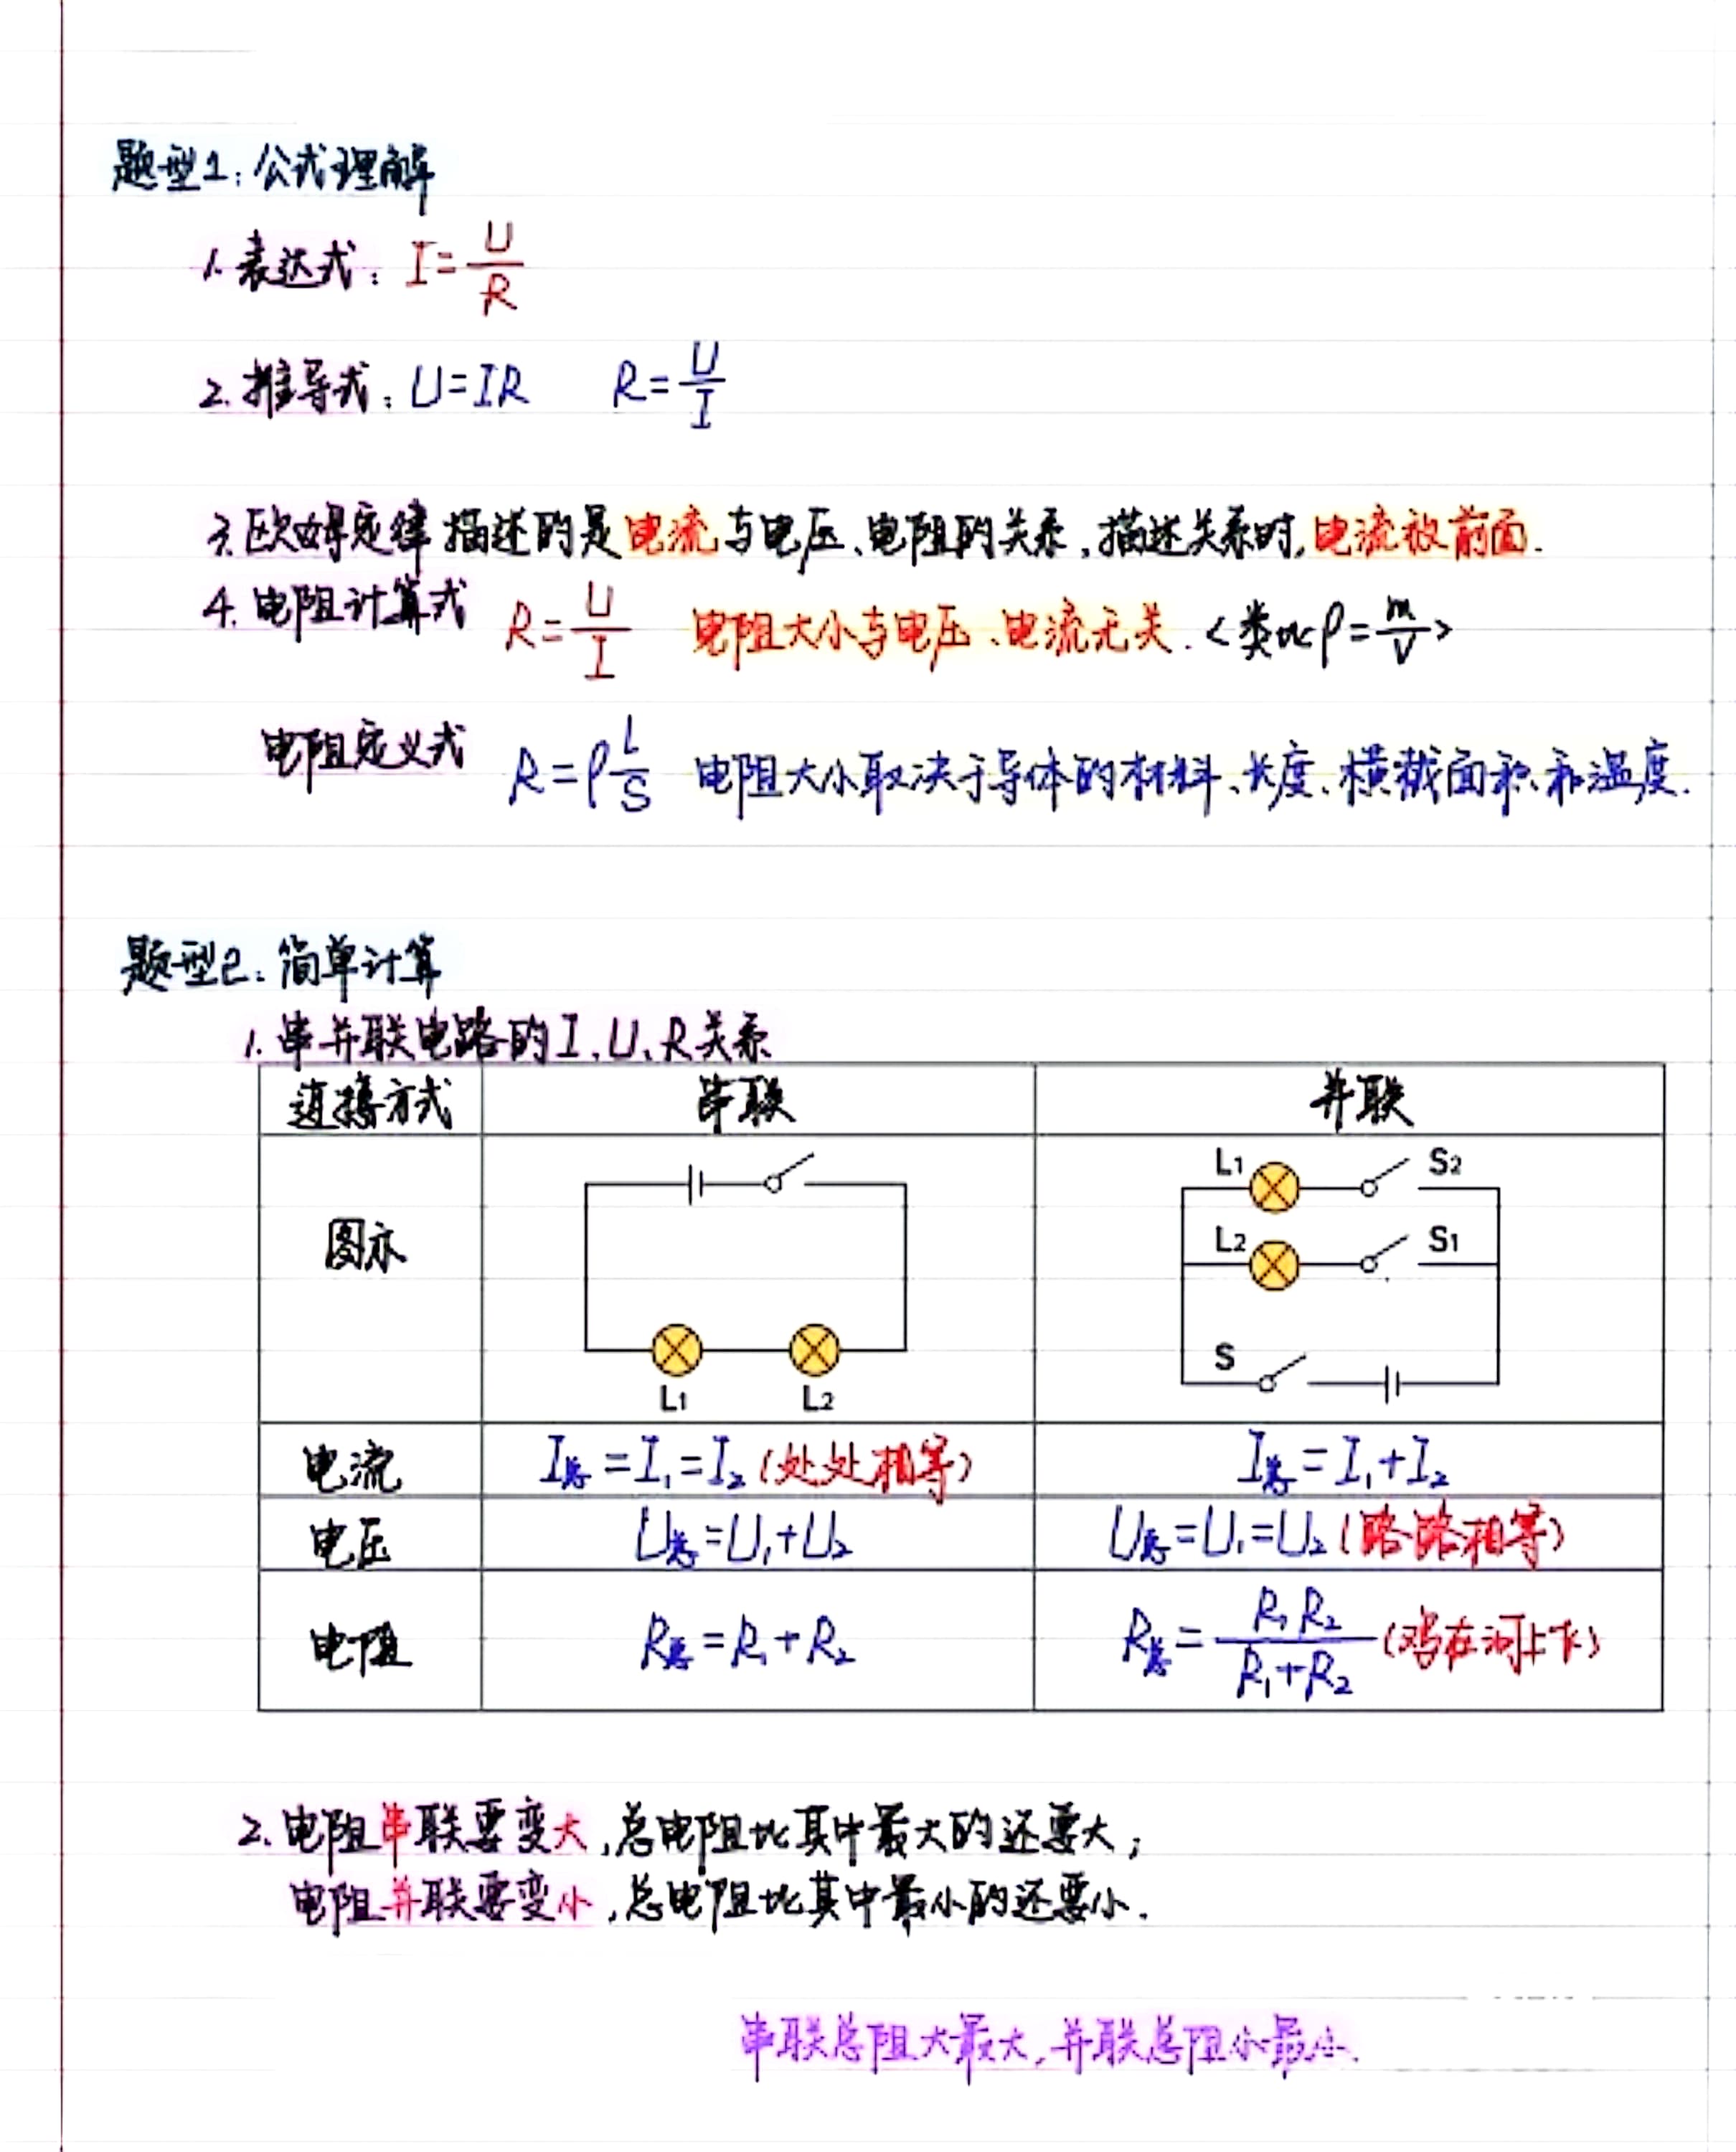 题型1：公式理解
1.表达式：I=U/R
2.推导式：U=IR R=U/I
3.欧姆定律描述的是电流与电压、电阻的关系，描述关系时，电流放前面.
4.电阻计算式 R=U/I 电阻大小与电压、电流无关.<类比ρ=m/V>
电阻定义式 R=ρL/S 电阻大小取决于导体的材料、长度、横截面积和温度.
题型2：简单计算
1.串并联电路的I、U、R关系
连接方式 串联 并联
图示
L1 S2
L2 S1
S
L1 L2
电流 I总=I₁=I₂(处处相等) I总=I₁+I₂
电压 U总=U₁+U₂ U总=U₁=U₂(路路相等)
电阻 R总=R₁+R₂ R总=R₁R₂/R₁+R₂(鸡在河上飞)
2.电阻串联要变大，总电阻比其中最大的还要大；
电阻并联要变小，总电阻比其中最小的还要小.
串联总阻大最大，并联总阻小最小.